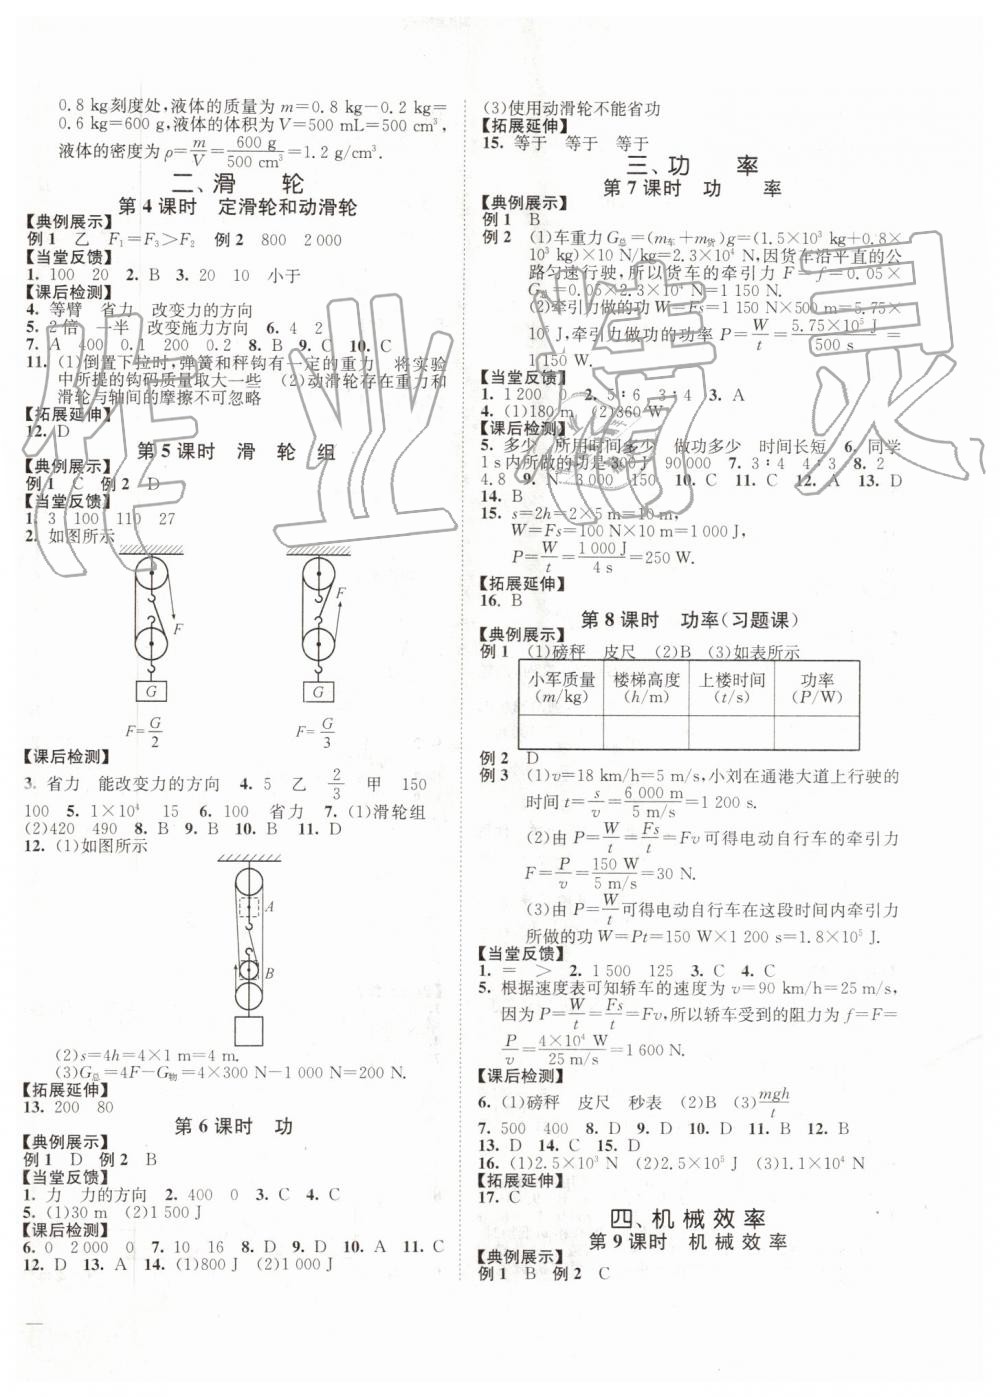 0.8 kg刻度处,液体的质量为 m=0.8 kg-0.2 kg=
0.6 kg=600 g,液体的体积为 V=500 mL=500 cm³,
液体的密度为 ρ=m/V=600 g/500 cm³=1.2 g/cm³.
二、滑 轮
第 4 课时 定滑轮和动滑轮
【典例展示】
例 1 乙 F₁=F₃>F₂ 例 2 800 2 000
【当堂反馈】
1. 100 20 2. B 3. 20 10 小于
【课后检测】
4. 等臂 省力 改变力的方向
5. 2倍 一半 改变施力方向 6. 4 2
7. A 400 0.1 200 0.2 8. B 9. C 10. C
11. (1)倒置下拉时,弹簧和秤钩有一定的重力 将实验
中所提的钩码质量取大一些 (2)动滑轮存在重力和
滑轮与轴间的摩擦不可忽略
【拓展延伸】
12. D
第 5 课时 滑 轮 组
【典例展示】
例 1 C 例 2 D
【当堂反馈】
1. 3 100 110 27
2. 如图所示
F F
G G
F=G/2 F=G/3
【课后检测】
3. 省力 能改变力的方向 4. 5 乙 2/3 甲 150
100 5. 1×10⁴ 15 6. 100 省力 7. (1)滑轮组
(2)420 490 8. B 9. B 10. B 11. D
12. (1)如图所示
A
B
(2)s=4h=4×1 m=4 m.
(3)G总=4F-G物=4×300 N-1 000 N=200 N.
【拓展延伸】
13. 200 80
第 6 课时 功
【典例展示】
例 1 D 例 2 B
【当堂反馈】
1. 力 力的方向 2. 400 0 3. C 4. C
5. (1)30 m (2)1 500 J
【课后检测】
6. 0 2 000 0 7. 10 16 8. D 9. D 10. A 11. C
12. D 13. A 14. (1)800 J (2)1 000 J
(3)使用动滑轮不能省功
【拓展延伸】
15. 等于 等于 等于
三、功 率
第 7 课时 功 率
【典例展示】
例 1 B
例 2 (1)车重力 G总=(m车+m货)g=(1.5×10³ kg+0.8×
10³ kg)×10 N/kg=2.3×10⁴ N,因货车沿平直的公
路匀速行驶,所以货车的牵引力 F=f=0.05×
G总=0.05×2.3×10⁴ N=1 150 N.
(2)牵引力做的功 W=Fs=1 150 N×500 m=5.75×
10⁵ J,牵引力做功的功率 P=W/t=5.75×10⁵ J/500 s=
1 150 W.
【当堂反馈】
1. 1 200 0 2. 5∶6 3∶4 3. A
4. (1)180 m (2)360 W
【课后检测】
5. 多少 所用时间多少 做功多少 时间长短 6. 同学
1 s内所做的功是300 J 90 000 7. 3∶4 4∶3 8. 2
4.8 9. N 3 000 150 10. C 11. C 12. A 13. D
14. B
15. s=2h=2×5 m=10 m,
W=Fs=100 N×10 m=1 000 J,
P=W/t=1 000 J/4 s=250 W.
【拓展延伸】
16. B
第 8 课时 功率(习题课)
【典例展示】
例 1 (1)磅秤 皮尺 (2)B (3)如表所示
小军质量 楼梯高度 上楼时间 功率
(m/kg) (h/m) (t/s) (P/W)
例 2 D
例 3 (1)v=18 km/h=5 m/s,小刘在通港大道上行驶的
时间 t=s/v=6 000 m/5 m/s=1 200 s.
(2)由 P=W/t=Fs/t=Fv可得电动自行车的牵引力
F=P/v=150 W/5 m/s=30 N.
(3)由 P=W/t可得电动自行车在这段时间内牵引力
所做的功 W=Pt=150 W×1 200 s=1.8×10⁵ J.
【当堂反馈】
1. = > 2. 1 500 125 3. C 4. C
5. 根据速度表可知轿车的速度为 v=90 km/h=25 m/s,
因为 P=W/t=Fs/t=Fv,所以轿车受到的阻力为 f=F=
P/v=4×10⁴ W/25 m/s=1 600 N.
【课后检测】
6. (1)磅秤 皮尺 秒表 (2)B (3)mgh/t
7. 500 400 8. D 9. D 10. D 11. B 12. B
13. D 14. C 15. D
16. (1)2.5×10³ N (2)2.5×10⁵ J (3)1.1×10⁴ N
【拓展延伸】
17. C
四、机 械 效 率
第 9 课时 机 械 效 率
【典例展示】
例 1 B 例 2 C
作业精灵